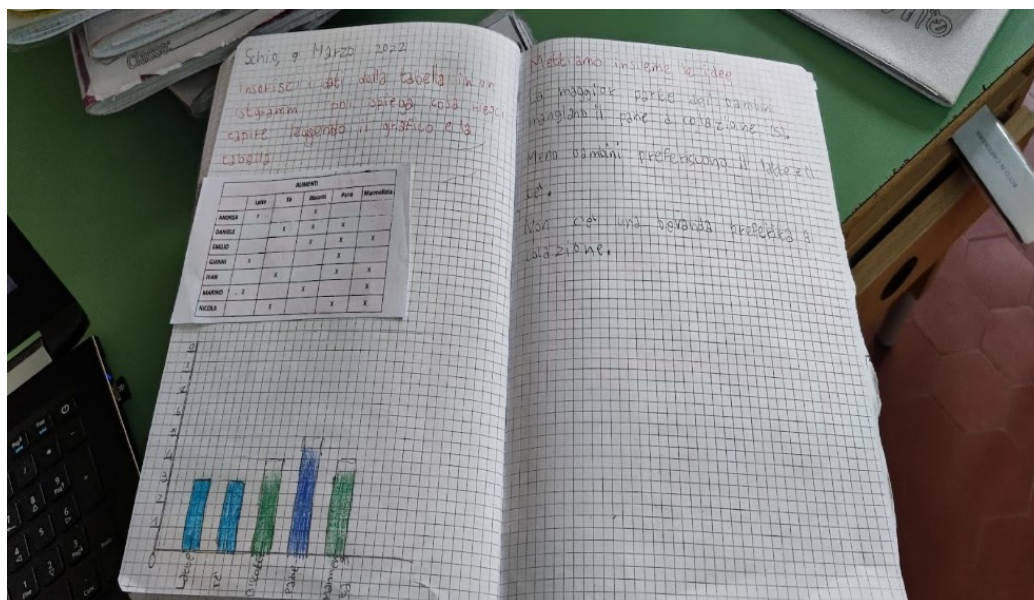 Classe
Schio, 9 Marzo 2022
Inserisci i dati dalla tabella in un
poi spiega cosa riesci
capire leggendo il grafico e la
tabella
ALIMENTI
Latte Tè Biscotti Pane Marmellata
ANDREA x x
DANIELE x x x
EMILIO x x x
GIANNI x x
IVAN x x x
MARINO x x x
NICOLA x x x
10
5
3
2
1
0
Latte
Tè
Pane
Mettiamo insieme le idee
La maggior parte dei bambini
mangiano il pane a colazione (5).
Meno bambini preferiscono il latte e il
tè.
Non c'è una bevanda preferita a
colazione.